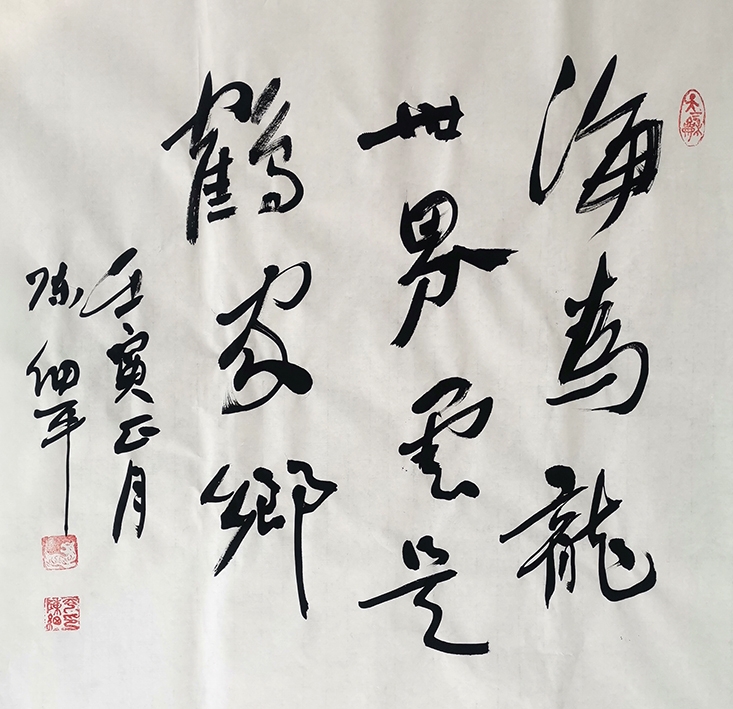 海為龍
世界雲是
鶴家鄉
壬寅正月
陈細平